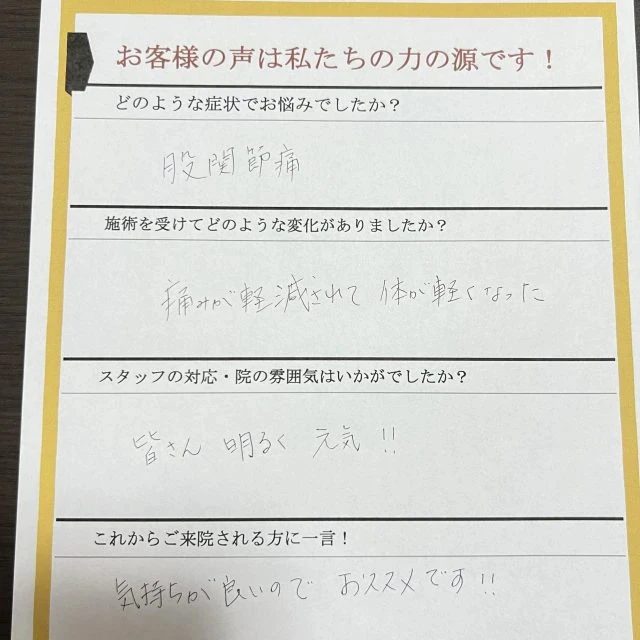 お客様の声は私たちの力の源です！
どのような症状でお悩みでしたか？
股関節痛
施術を受けてどのような変化がありましたか？
痛みが軽減されて 体が軽くなった
スタッフの対応・院の雰囲気はいかがでしたか？
皆さん 明るく 元気!!
これからご来院される方に一言！
気持ちが良いので おススメです!!